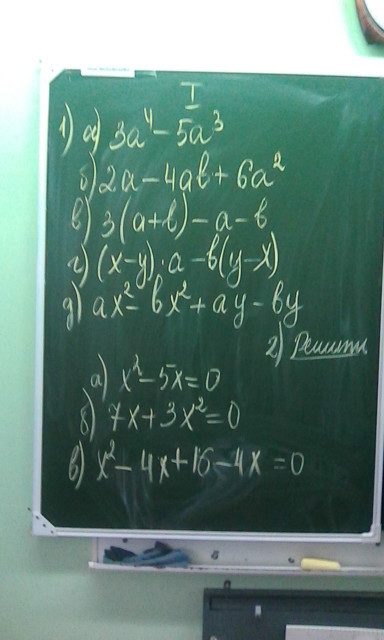 I
1) а) 3a⁴ - 5a³
б) 2a - 4ab + 6a²
в) 3(a+b) - a - b
г) (x-y)·a - b(y-x)
д) ax² - bx² + ay - by
2) Решить
а) x² - 5x = 0
б) 7x + 3x² = 0
в) x² - 4x + 16 - 4x = 0